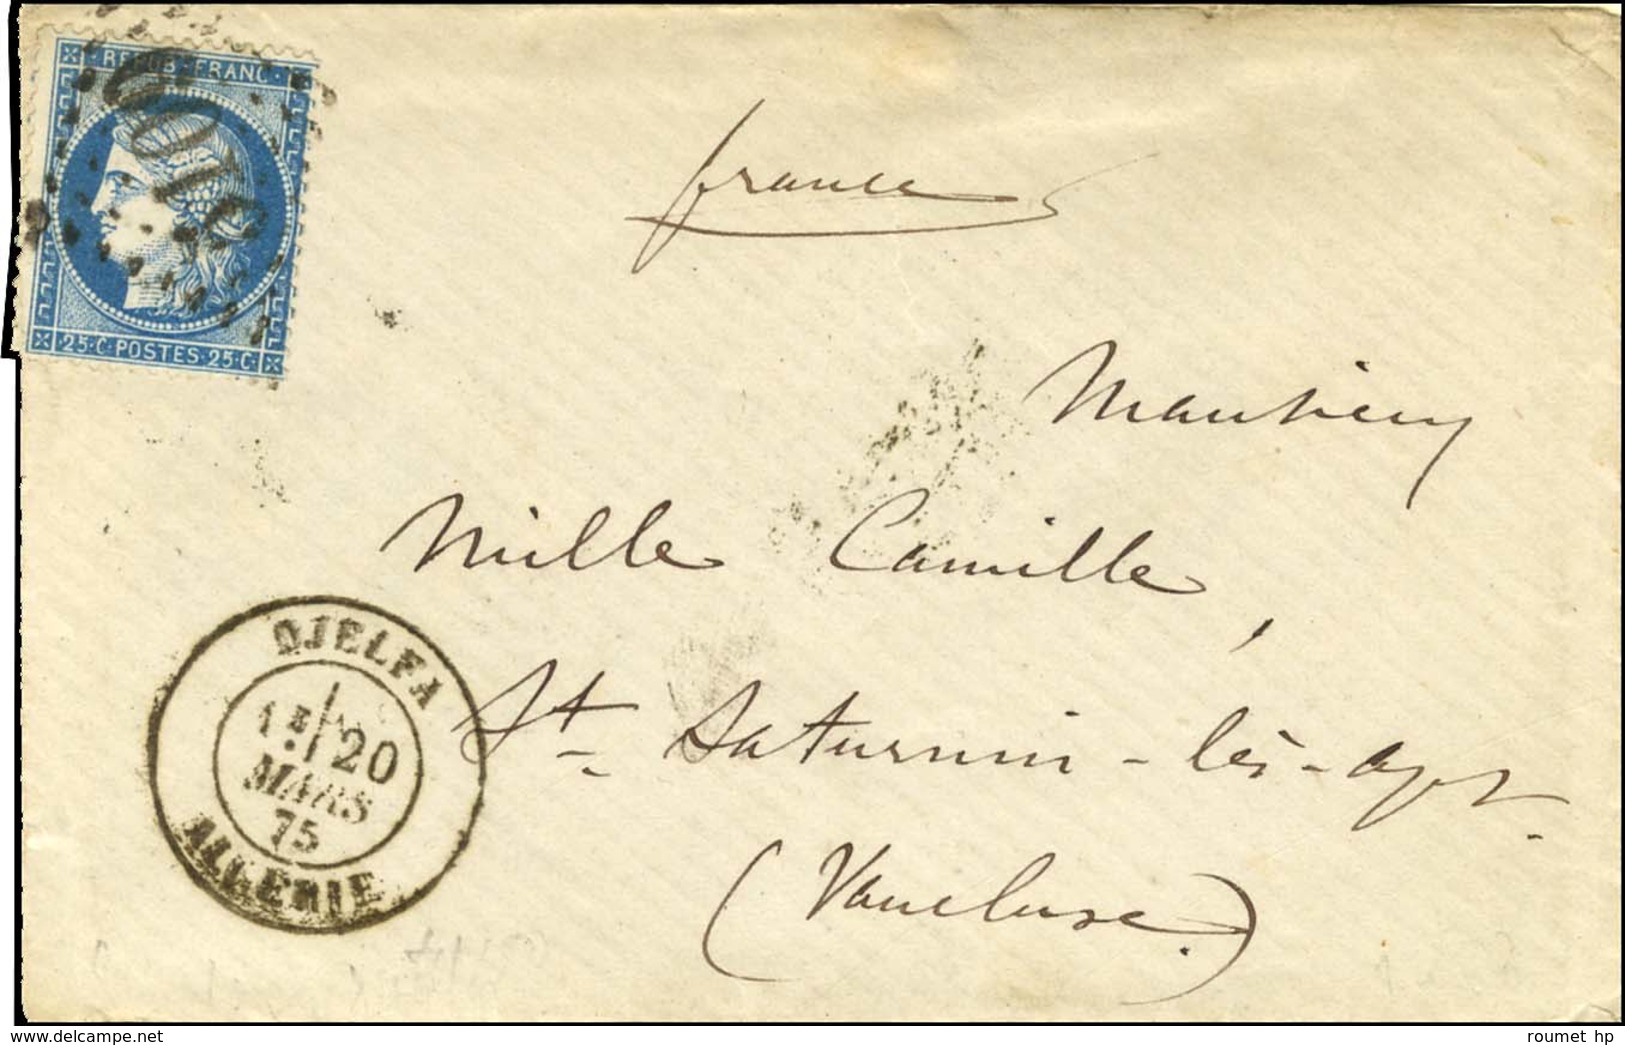 REPUB·FRANC·
25·C·POSTES·25·C·
france
Mille Camille,
St Saturnin-lès-apt.
(Vaucluse.)
DJELFA
1re 20
MARS
75
ALGERIE
www.delcampe.net
roumet hp